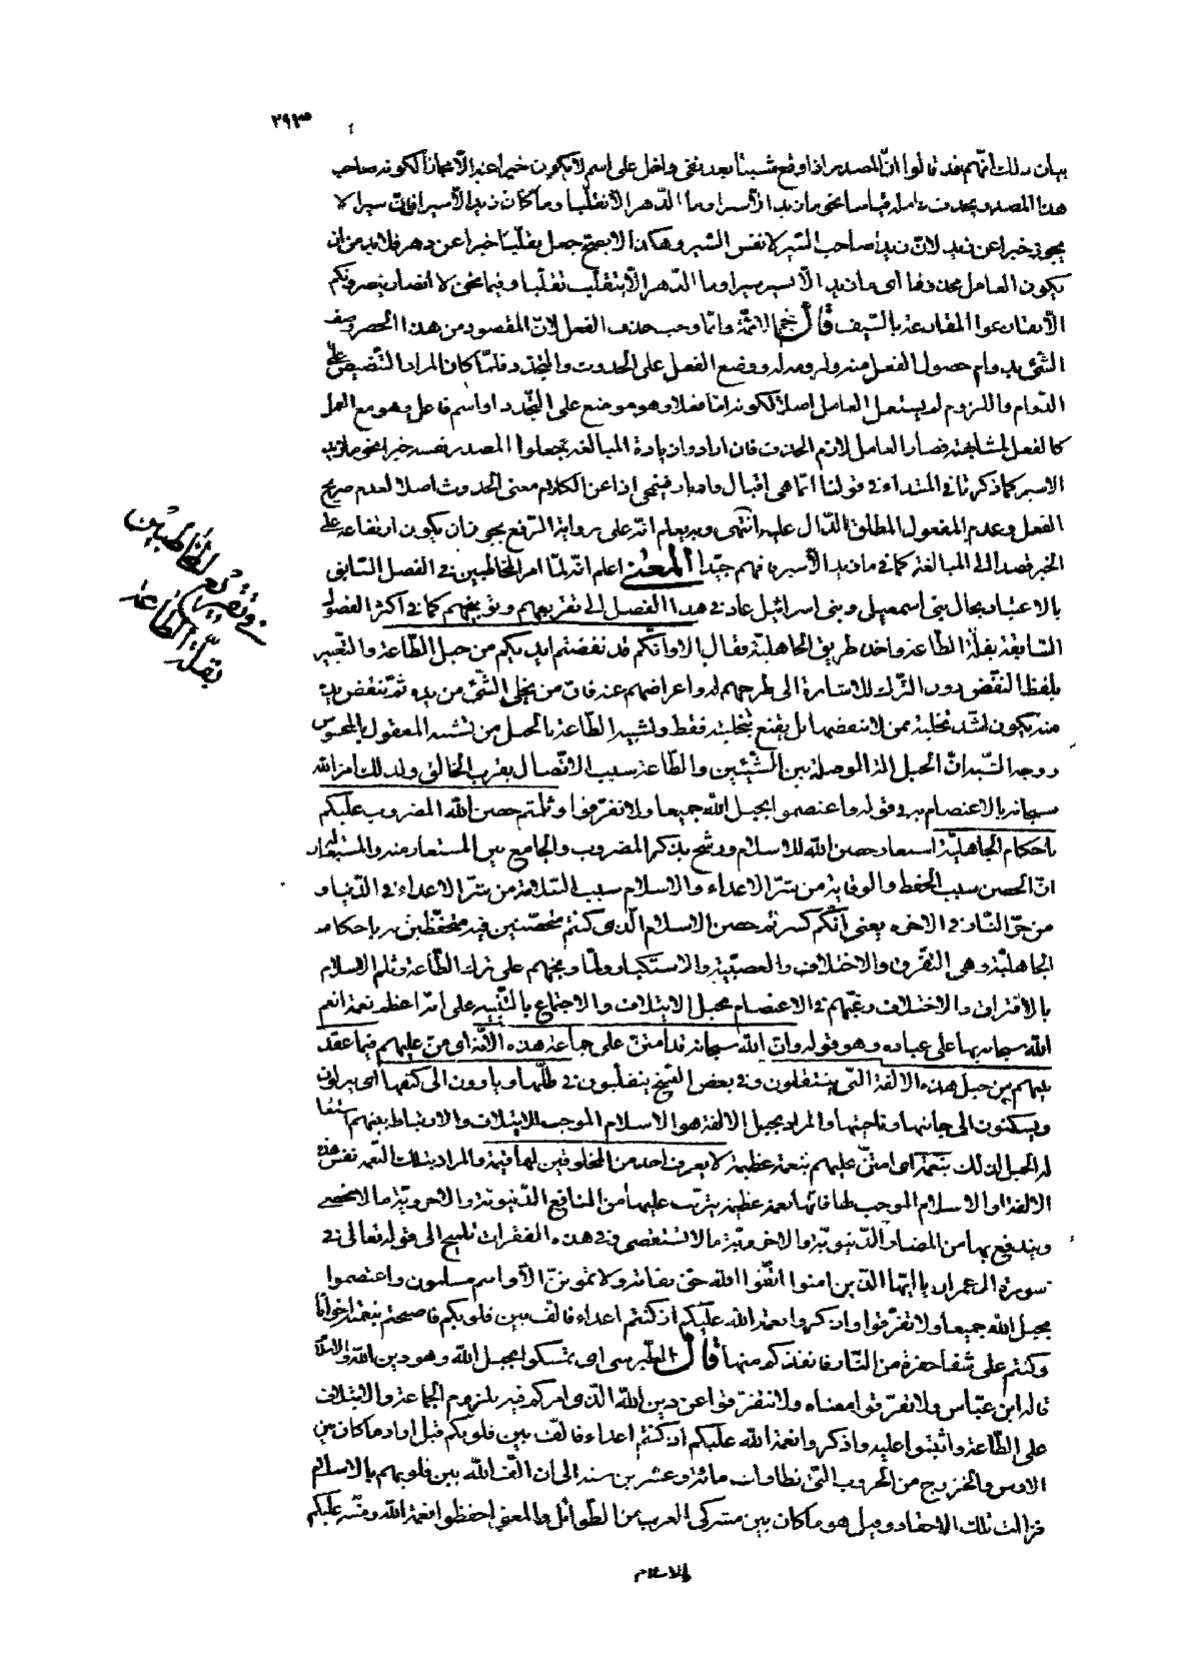 ٢٩٣
بيان ذلك أنّهم قد قالوا انّ المصدر اذا وقع مثبتا بعد نفى داخل على اسم لا يكون خبرا عنه الّا مجازا لكونه صاحب
هذا المصدر ويحذف عامله قياسا نحو ما زيد الّا سيرا وما الدّهر الّا تقلّبا وما كان زيد الّا سيرا فانّ سيرا لا
يجوز خبرا عن زيد لانّ زيدا صاحب السّير لا نفس السّير وهكذا لا يصحّ جعل تقلّبا خبرا عن دهر فلا بد من ان
يكون العامل محذوفا اى ما زيد الّا يسير سيرا وما الدّهر الّا يتقلّب تقلّبا وفيما نحن لا انصار ينصرونكم
الّا تقارعوا المقارعة بالسّيف قال نجم الائمّة وانّما وجب حذف الفعل لانّ المقصود من هذا الحصر وصف
الشّئ بدوام حصول الفعل منه ولزومه له ووضع الفعل على الحدوث والتّجدّد فلمّا كان المراد التّنصيص على
الدّوام واللزوم لم يستعمل العامل اصلا لكونه امّا فعلا وهو موضع على التّجدّد او اسم فاعل وهو مع العمل
كالفعل لمشابهته فصار العامل لازم الحذف فان ارادوا زيادة المبالغة جعلوا المصدر نفسه خبرا نحو ما زيد
الّا سير كما ذكرنا فى المبتداء فى قولنا انّما هى اقبال وادبار فينمحى اذا عن الكلام معنى الحدوث اصلا لعدم صريح
الفعل وعدم المفعول المطلق الدّال عليه انتهى وبه يعلم انّه على رواية الرّفع يجوز ان يكون ارتفاعه على
الخبر قصدا الى المبالغة كما فى ما زيد الّا سير فافهم جيّدا المعنى اعلم انّه لمّا امر المخاطبين فى الفصل السّابق
بالاعتبار بحال بنى اسمعيل وبنى اسرائيل عاد فى هذا الفصل الى تقريعهم وتوبيخهم كما فى اكثر الفصول
السّابقة بقلّة الطّاعة واخذ طريق الجاهليّة فقال الا وانّكم قد نفضتم ايديكم من حبل الطّاعة والتّعبير
بلفظ النّفض دون التّرك للاشارة الى طرحهم له واعراضهم عنه فانّ من يخلى الشّئ من يده ثمّ ينفض يده
منه يكون اشدّ تخلية ممن لا ينفضها بل يقنع بتخليته فقط وتشبيه الطّاعة بالحبل من تشبيه المعقول بالمحسوس
ووجه الشّبه انّ الحبل الة الموصلة بين الشّيئين والطّاعة سبب الاتّصال بقرب الخالق ولذلك امر الله
سبحانه بالاعتصام به فى قوله واعتصموا بحبل الله جميعا ولا تفرّقوا وثلمتم حصن الله المضروب عليكم
باحكام الجاهليّة استعار حصن الله للاسلام ورشّح بذكر المضروب والجامع بين المستعار منه والمستعار له
انّ الحصن سبب الحفظ والوقاية من شرّ الاعداء والاسلام سبب السّلامة من شرّ الاعداء فى الدّنيا و
من حرّ النّار فى الاخرة يعنى أنّكم كسرتم حصن الاسلام الّذى كنتم متحصّنين فيه متحفّظين به باحكام
الجاهليّة وهى التّفرّق والاختلاف والعصبيّة والاستكبار ولمّا وبّخهم على ترك الطّاعة وثلم الاسلام
بالافتراق والاختلاف رغّبهم فى الاعتصام بحبل الايتلاف والاجتماع بالتّنبيه على انّه اعظم نعمة انعم
الله سبحانه بها على عباده وهو قوله وانّ الله سبحانه قد امتنّ على جماعة هذه الأمّة اى منّ عليهم فيما عقد
بينهم من حبل هذه الالفة الّتى ينتقلون وفى بعض النّسخ يتقلّبون فى ظلّها ويأوون الى كنفها اى ينزلون
ويسكنون الى جانبها وناحيتها والمراد بحبل الالفة هو الاسلام الموجب للايتلاف والارتباط بينهم استعا
له الحبل لذلك بنعمة اى امتنّ عليهم بنعمة عظيمة لا يعرف احد من المخلوقين لها قيمة والمراد بتلك النّعمة نفس هذه
الالفة او الاسلام الموجب لها فانّها نعمة عظيمة يترتّب عليها من المنافع الدّنيويّة والاخرويّة ما لا يحصى
ويندفع بها من المضار الدّنيويّة والاخرويّة ما لا تستقصى وفى هذه الفقرات تلميح الى قوله تعالى فى
سورة ال عمران يا ايّها الّذين امنوا اتّقوا الله حقّ تقاته ولا تموتنّ الّا وانتم مسلمون واعتصموا
بحبل الله جميعا ولا تفرّقوا واذكروا نعمة الله عليكم اذ كنتم اعداء فالّف بين قلوبكم فاصبحتم بنعمته اخوانا
وكنتم على شفا حفرة من النّار فانقذكم منها قال الطّبرسى اى تمسّكوا بحبل الله وهو دين الله والاسلام
قاله ابن عبّاس ولا تفرّقوا معناه ولا تتفرّقوا عن دين الله الّذى امركم فيه بلزوم الجماعة والايتلاف
على الطّاعة واثبتوا عليه واذكروا نعمة الله عليكم اذ كنتم اعداء فالّف بين قلوبكم قيل اراد ما كان بين
الاوس والخزرج من الحروب الّتى تطاولت مائة وعشرين سنة الى ان الّف الله بين قلوبهم بالاسلام
فزالت تلك الاحقاد وقيل هو ما كان بين مشركى العرب من الطّوائل والمعنى احفظوا نعمة الله ومنّته عليكم
بالاسلام
فى تقريع المخاطبين
بقلّة الطّاعة